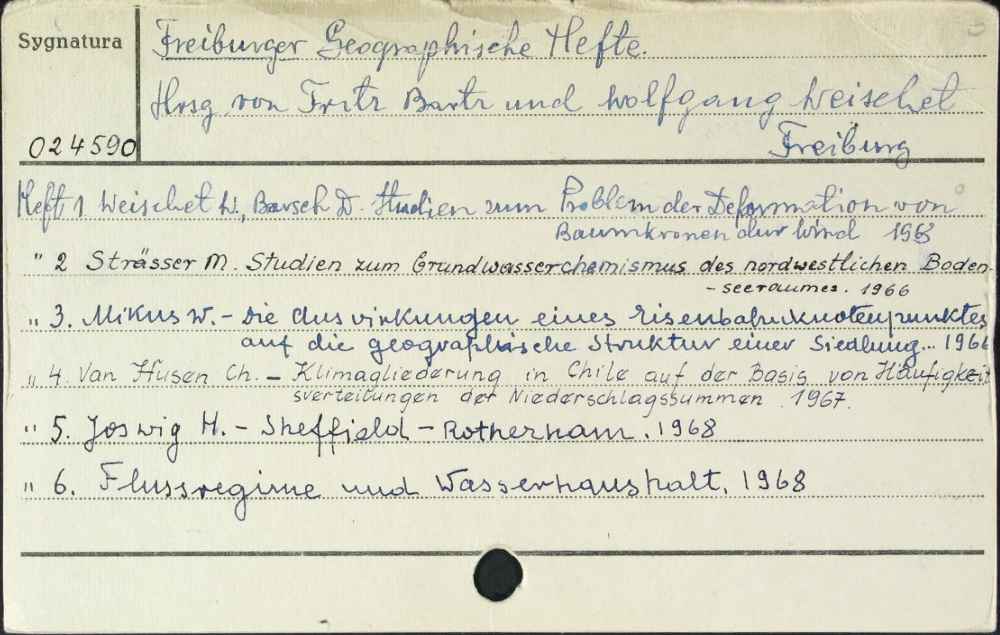 Sygnatura
Freiburger Geographische Hefte.
Hrsg. von Fritz Bartz und Wolfgang Weischet
024590
Freiburg
Heft 1 Weischet W., Barsch D. Studien zum Problem der Deformation von
Baumkronen dur Wind 1963
" 2 Strässer M. Studien zum Grundwasserchemismus des nordwestlichen Boden-
-seeraumes. 1966
" 3. Mikus W. - Die Auswirkungen eines Eisenbahnknotenpunktes
auf die geographische Struktur einer Siedlung... 1966
" 4. Van Husen Ch. - Klimagliederung in Chile auf der Basis von Häufigkeit
sverteilungen der Niederschlagssummen. 1967.
" 5. Joswig H. - Sheffield - Rotherham. 1968
" 6. Flussregime und Wasserhaushalt. 1968